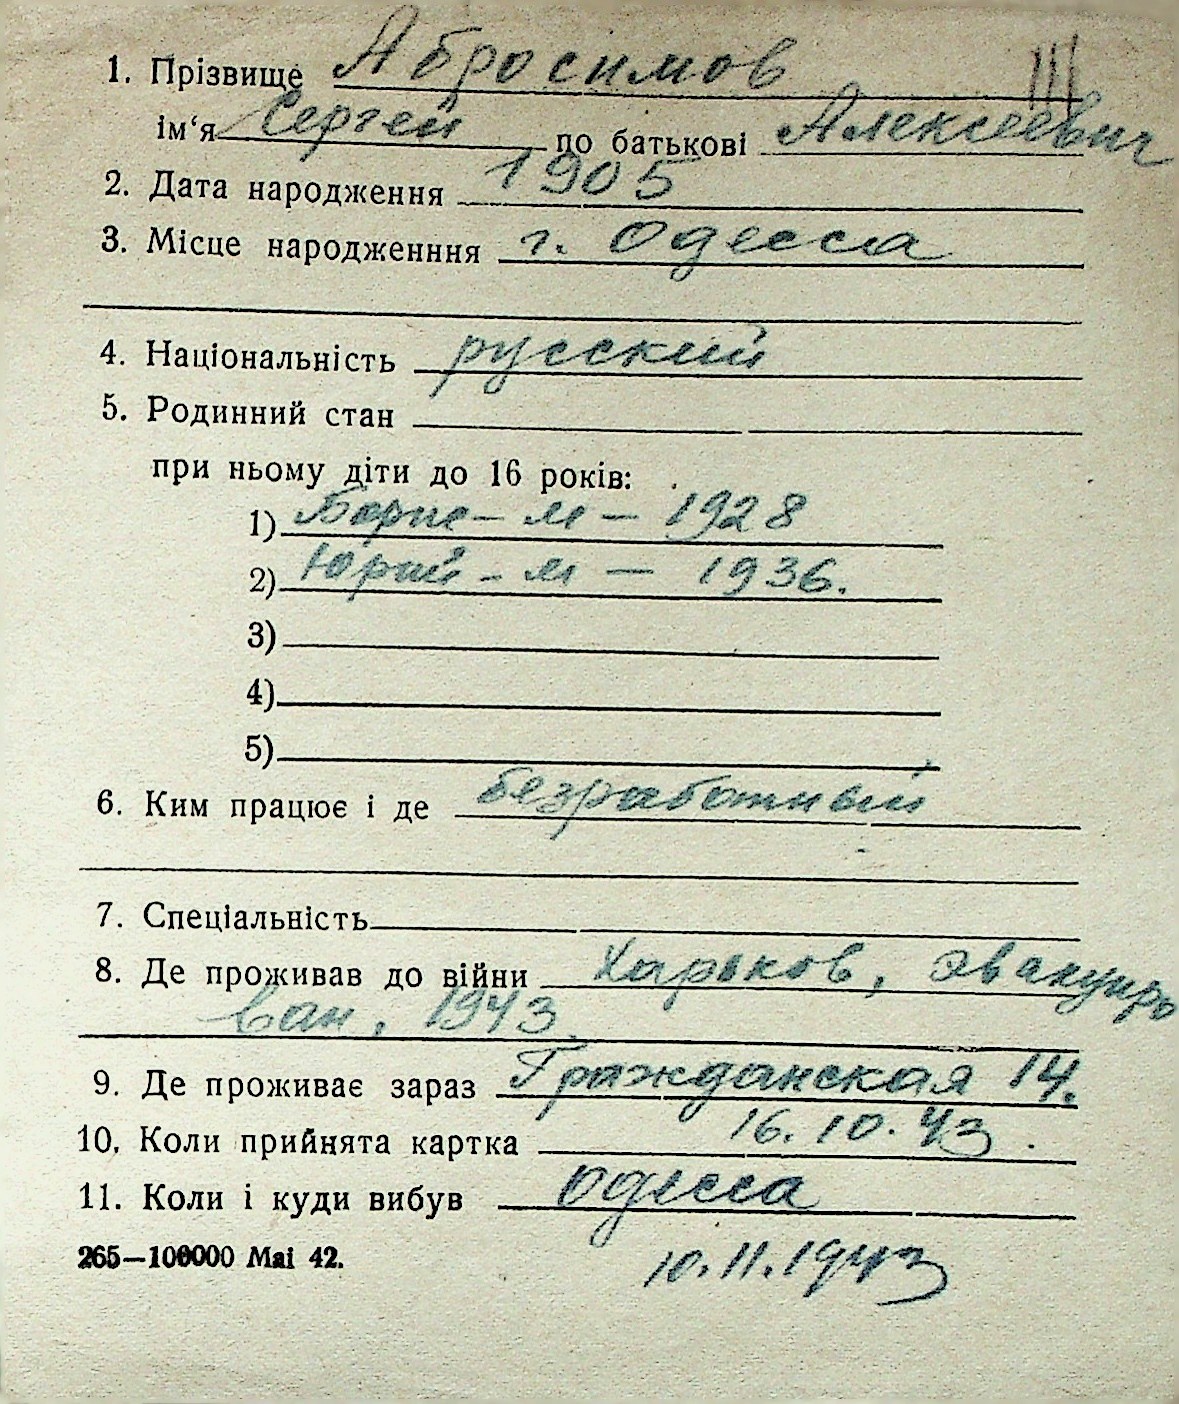 1. Прізвище Абросимов III
ім'я Сергей по батькові Алексеевич
2. Дата народження 1905
3. Місце народженння г. Одесса
4. Національність русский
5. Родинний стан
при ньому діти до 16 років:
1) Борис - м - 1928
2) Юрий - м - 1936.
3)
4)
5)
6. Ким працює і де безработный
7. Спеціальність
8. Де проживав до війни Харьков, эвакуиро
ван. 1943
9. Де проживає зараз Гражданская 14.
10. Коли прийнята картка 16.10.43.
11. Коли і куди вибув Одесса
265—100000 Маі 42.
10.11.1943